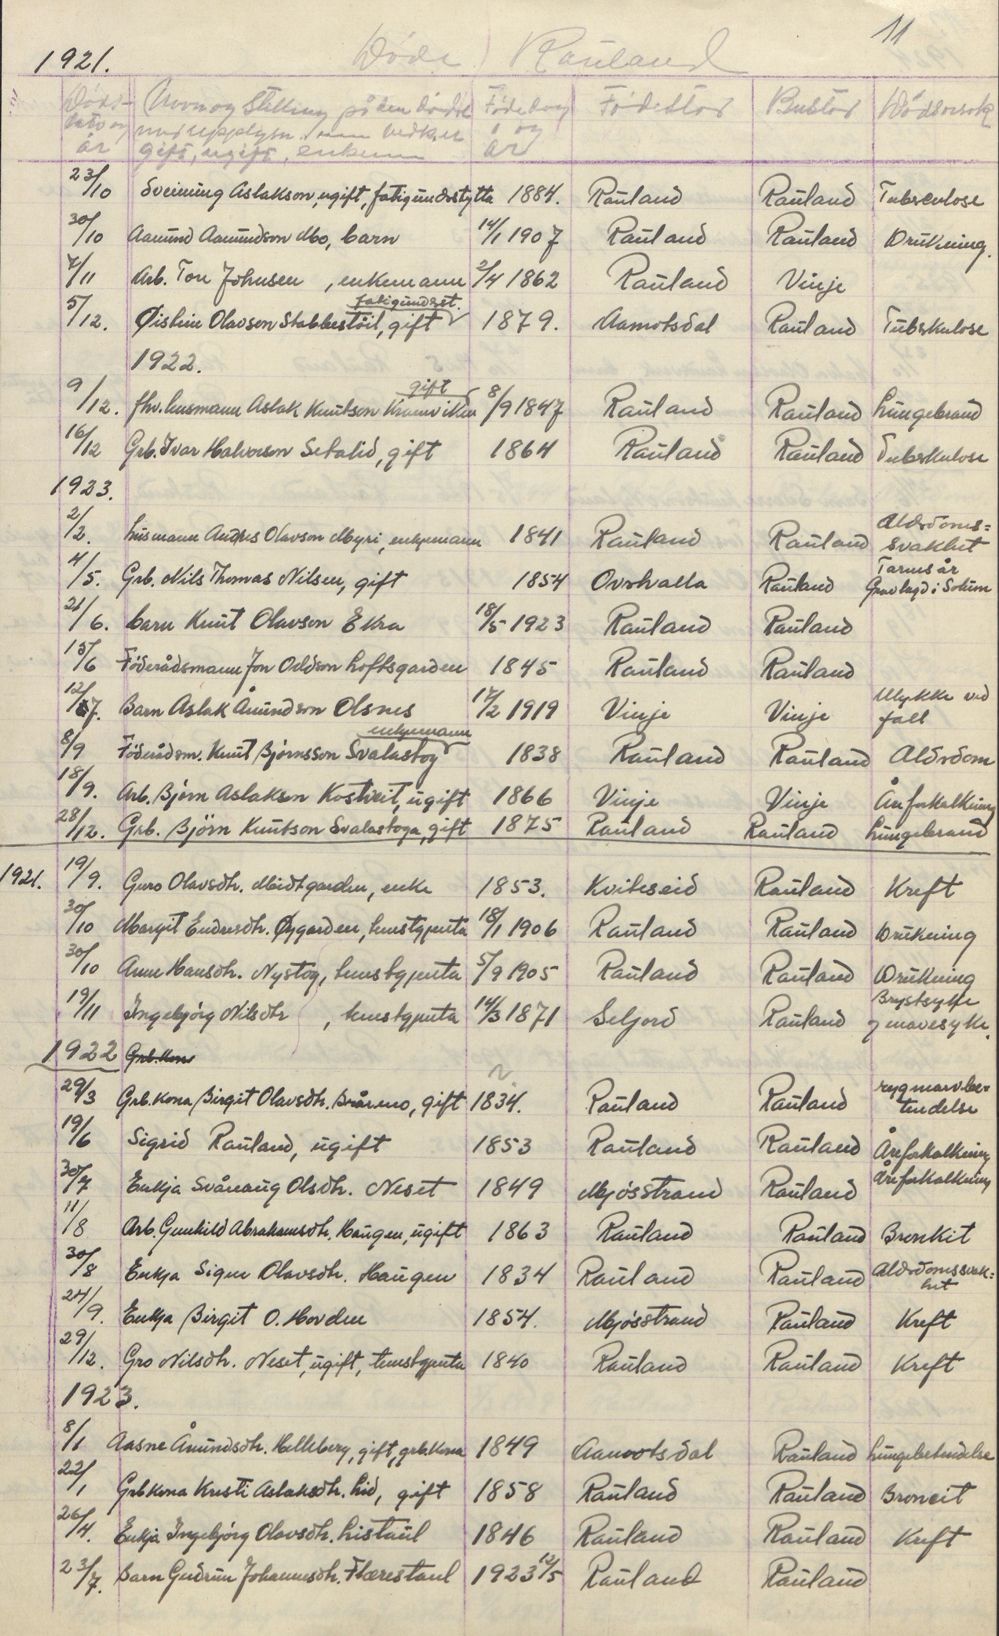 11
1921. Døde i Rauland
Døds- Navn og Stilling på den døde Fødedag Fødestor Bustor Dødsorsak
dato og med upplysn. um vedk. er i og
år gift, ugift, enkemann år
23/10 Sveinung Aslakson, ugift, fatigunderstytta 1884. Rauland Rauland Tuberculose
30/10 Aamund Aamundson Mo, barn 14/1 1907 Rauland Rauland Drukning.
7/11 Arb. Tor Johnsen, enkemann 2/4 1862 Rauland Vinje
fatigunderst.
5/12. Øistein Olavson Stabbestöil, gift 1879. Aamotsdal Rauland Tuberkulose
1922.
gift
9/12. fhv. husmann Aslak Knutson Kromviken 8/9 1847 Rauland Rauland Lungebrand
16/12 Grb. Ivar Halvorson Setalid, gift 1864 Rauland Rauland Tuberkulose
1923.
2/2. husmann Andres Olavson Myri, enkjemann 1841 Rauland Rauland Alderdoms=
svakhet
4/5. Grb. Nils Thomas Nilsen, gift 1854 Ovrhalla Rauland Tarmsår
Gravlagd i Solum
21/6. barn Knut Olavson Ekra 18/5 1923 Rauland Rauland
15/6 Föderådsmann Jon Oddson Loftsgarden 1845 Rauland Rauland
12/7. Barn Aslak Åmundson Olsnes 17/2 1919 Vinje Vinje Ulykke ved
fall
enkjemann
8/9 Föderådsm. Knut Bjørnsson Svalastog 1838 Rauland Rauland Alderdom
18/9. Arb. Bjørn Aslakson Kostveit, ugift 1866 Vinje Vinje Åreforkalkning
28/12. Grb. Björn Knutson Svalastoga, gift 1875 Rauland Rauland Lungebrand
1921. 19/9. Guro Olavsdtr. Midtgarden, enke 1853. Kviteseid Rauland Kreft
30/10 Margit Endresdtr. Øygarden, hustgjenta 18/1 1906 Rauland Rauland Drukning
30/10 Anne Hansdtr. Nystog, hustgjenta 5/9 1905 Rauland Rauland Drukning
19/11 Ingebjörg Nilsdtr, hustgjenta 14/3 1871 Seljord Rauland Brystsyke
og mavesyke.
1922 Grb.kone
29/3 Grb.kona Birgit Olavsdtr. Bråtemo, gift 1834. Rauland Rauland rygmarvbe-
tendelse
19/6 Sigrid Rauland, ugift 1853 Rauland Rauland Åreforkalkning
30/7 Enkja Svånaug Olsdtr. Neset 1849 Mjösstrand Rauland Åreforkalkning
11/8 Arb. Gunhild Abrahamsdtr. Haugen, ugift 1863 Rauland Rauland Bronkit
30/8 Enkja Signe Olavsdtr. Haugen 1834 Rauland Rauland Alderdomssvak=
het
24/9. Enkja Birgit O. Hovden 1854. Mjösstrand Rauland Kreft
29/12. Gro Nilsdtr. Neset, ugift, hustgjenta 1840 Rauland Rauland Kreft
1923.
8/1 Aasne Åmundsdtr. Helleberg, gift, grb.kona 1849 Aamotsdal Rauland Lungebetendelse
22/1 Grbkona Kristi Aslaksdtr. Lid, gift 1858 Rauland Rauland Broncit
26/4. Enkja Ingebjörg Olavsdtr. Listaul 1846 Rauland Rauland Kreft
23/7. Barn Gudrun Johannesdtr. Flærestaul 1923 12/5 Rauland Rauland